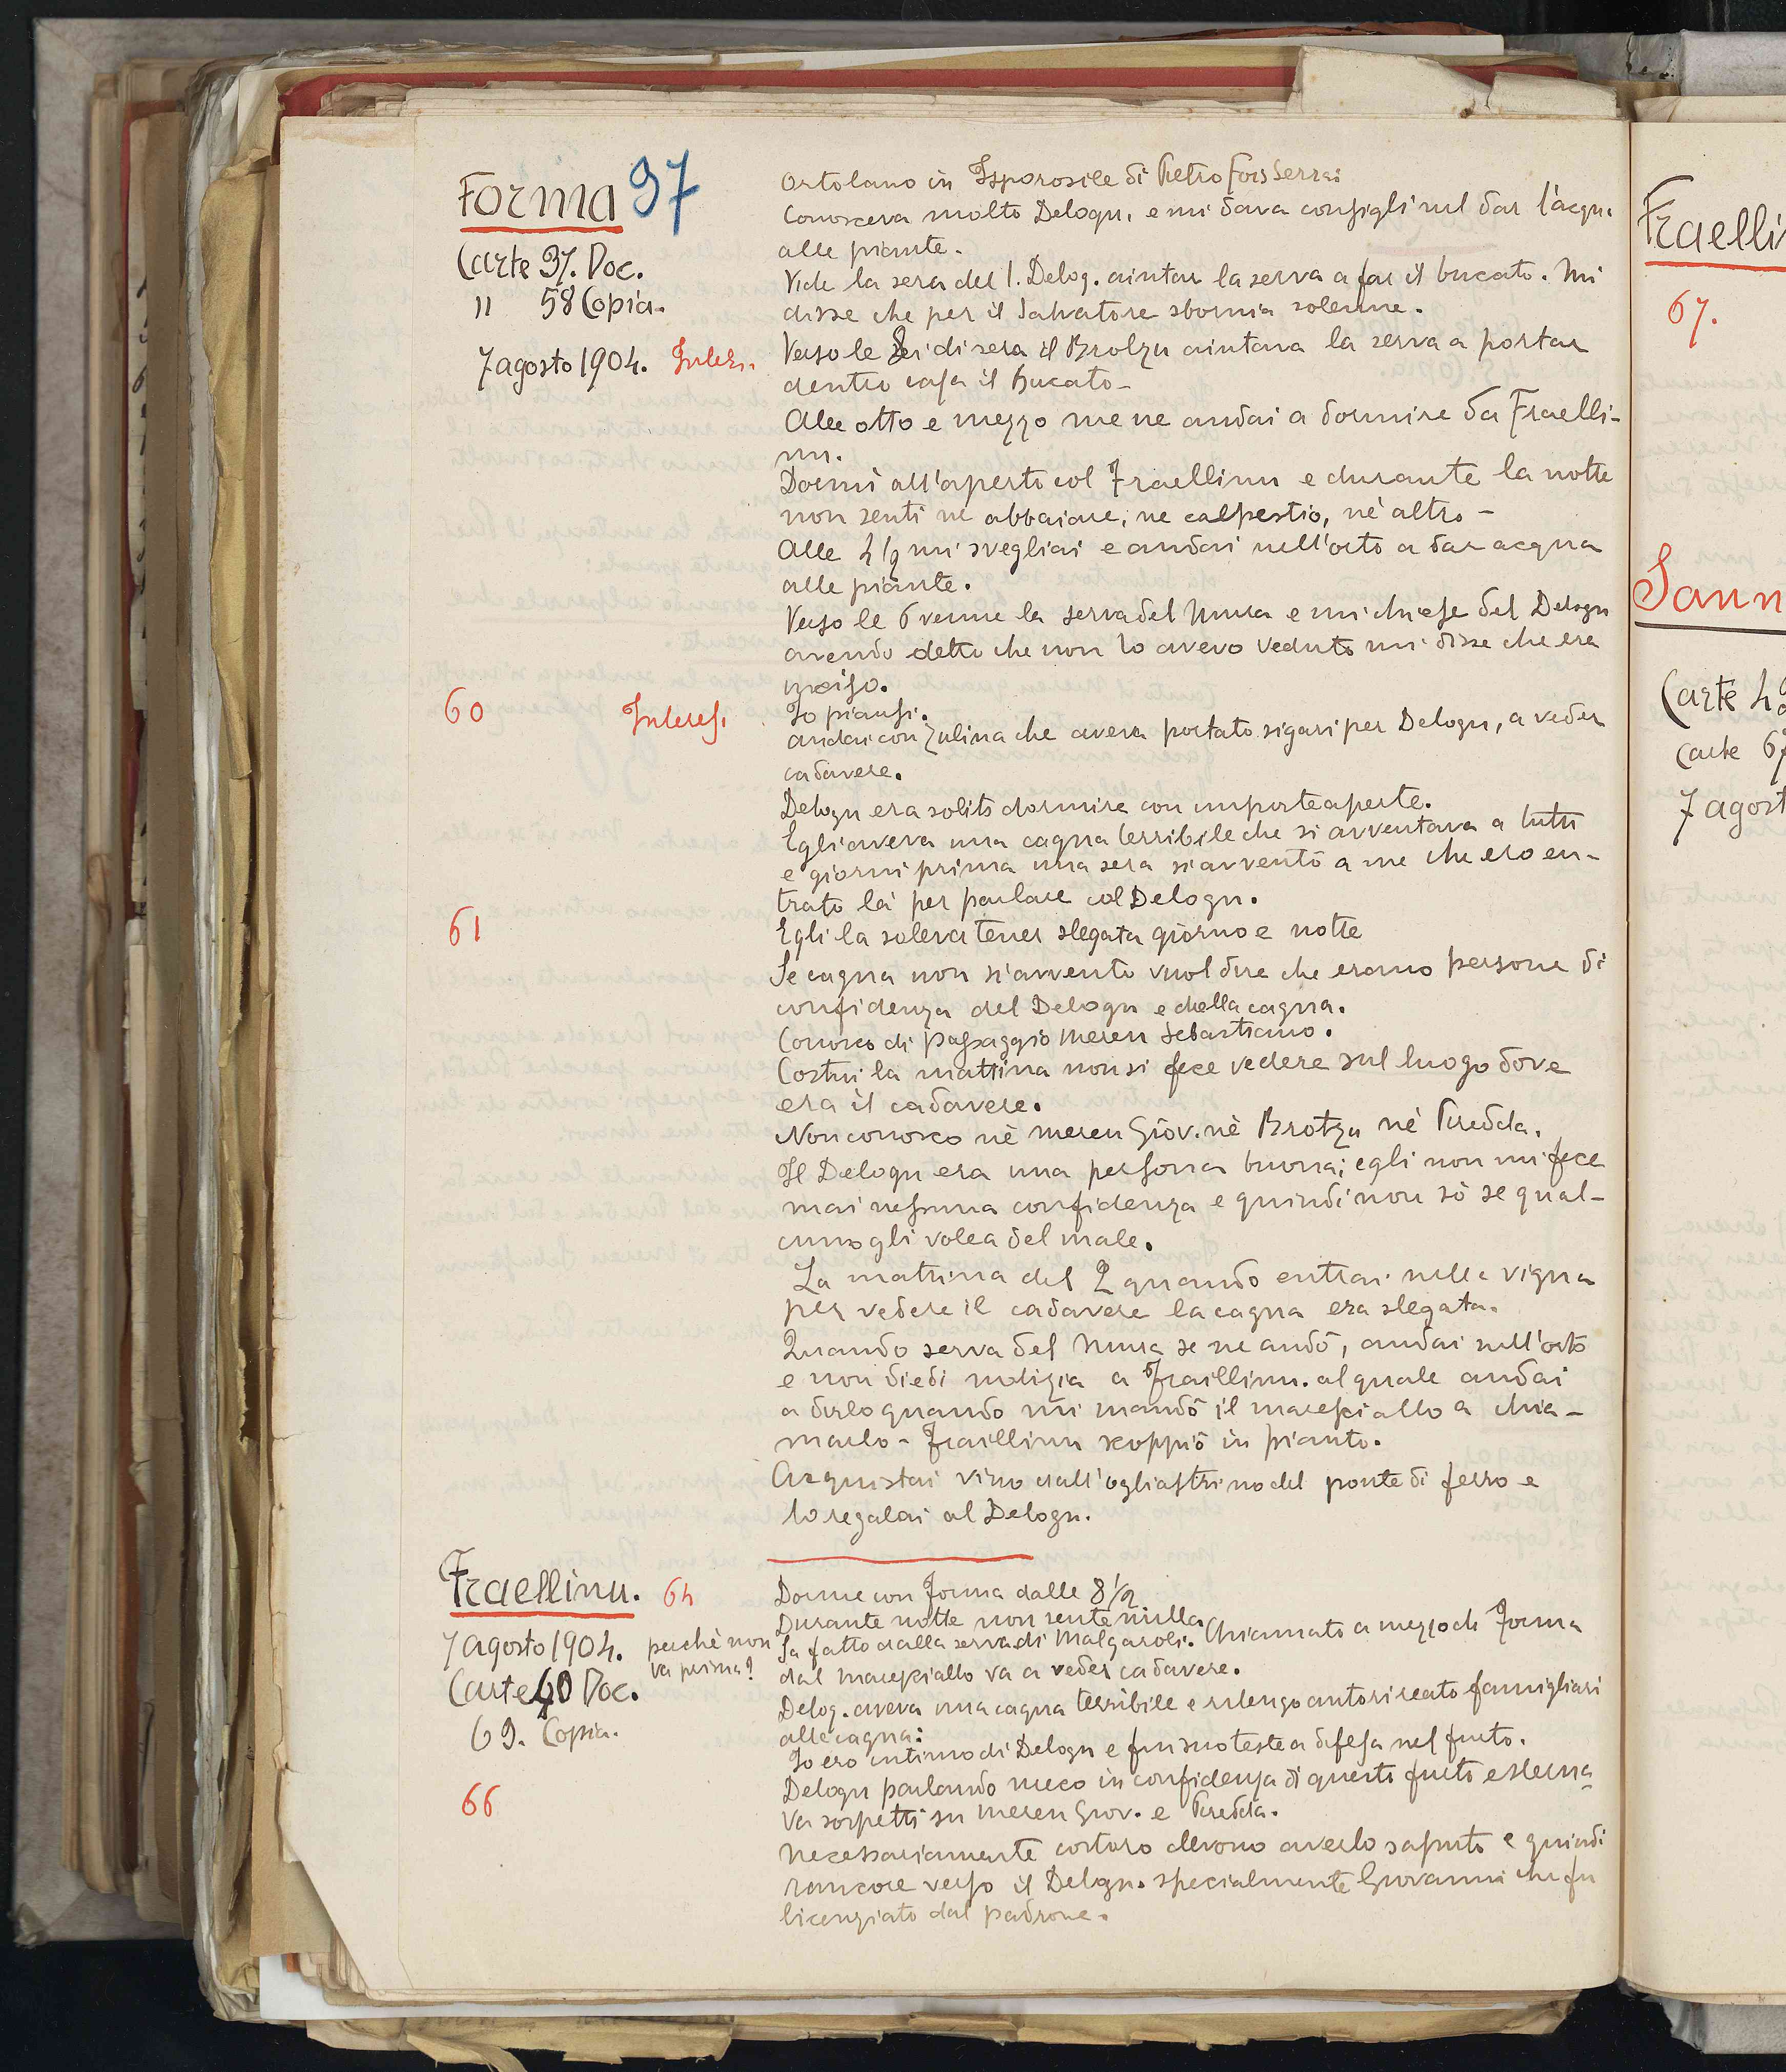 Forma 37
Carte 37. Doc.
" 58 Copia.
7 agosto 1904. Interes.
Ortolano in Isporosile di Pietro Fois Serra:
Conosceva molto Delogu, e mi dava consigli sul dar l'acqua
alle piante.
Vide la sera del 1. Delog. aiutar la serva a far il bucato. Mi
disse che per il Salvatore sbornia solenne.
Verso le sei di sera il Brotzu aiutava la serva a portar
dentro casa il bucato-
Alle otto e mezzo me ne andai a dormire da Fraelli-
nu.
Dormì all'aperto col Fraellinu e durante la notte
non sentì nè abbaiare, ne calpestio, nè altro -
Alle 4 1/2 mi svegliai e andai nell'orto a dar acqua
alle piante.
Verso le 6 venne la serva del Mura e mi chiese del Delogu
avendo detto che non lo avevo veduto mi disse che era
ucciso.
60 Interes.
Io piansi.
andai con Zulina che aveva portato sigari per Delogu, a veder
cadavere.
Delogu era solito dormire con imposte aperte.
Egli aveva una cagna terribile che si avventava a tutti
e giorni prima una sera si avventò a me che ero en-
trato là per parlare col Delogu.
61
Egli la soleva tener slegata giorno e notte
Se cagna non si avventò vuol dire che erano persone di
confidenza del Delogu e della cagna.
Conosco di passaggio Mereu Sebastiano.
Costui la mattina non si fece vedere sul luogo dove
era il cadavere.
Non conosco nè Mereu Giov. nè Brotzu nè Piredda.
Il Delogu era una persona buona; egli non mi fece
mai nessuna confidenza e quindi non sò se qual-
cuno gli volea del male.
La mattina del 2 quando entrai nella vigna
per vedere il cadavere la cagna era slegata.
Quando serva del Mura se ne andò, andai nell'orto
e non diedi notizia a Fraillinu. al quale andai
a dirlo quando mi mandò il maresciallo a chia-
marlo - Fraillinu scoppiò in pianto.
Acquistai vino dall'ogliastrino del ponte di ferro e
lo regalai al Delogu.
Fraellinu. 64
7 agosto 1904. perchè non
va prima?
Carte 40 Doc.
69. Copia.
Dorme con Forma dalle 8 1/2
Durante notte non sente nulla
Sa fatto dalla serva di Malgaroli. Chiamato a mezzo di Forma
dal maresciallo va a veder cadavere.
Delog. aveva una cagna terribile e ritengo autori reato famigliari
alla cagna:
Io ero intimo di Delogu e fui suo teste a difesa nel furto.
66
Delogu parlando meco in confidenza di questo furto esterna-
va sospetti su Mereu Giov. e Piredda.
Necessariamente costoro devono averlo saputo e quindi
rancore verso il Delogu. specialmente Giovanni che fu
licenziato dal padrone.
Fraelli
67.
Sann
Carte
Carte 67
7 agost